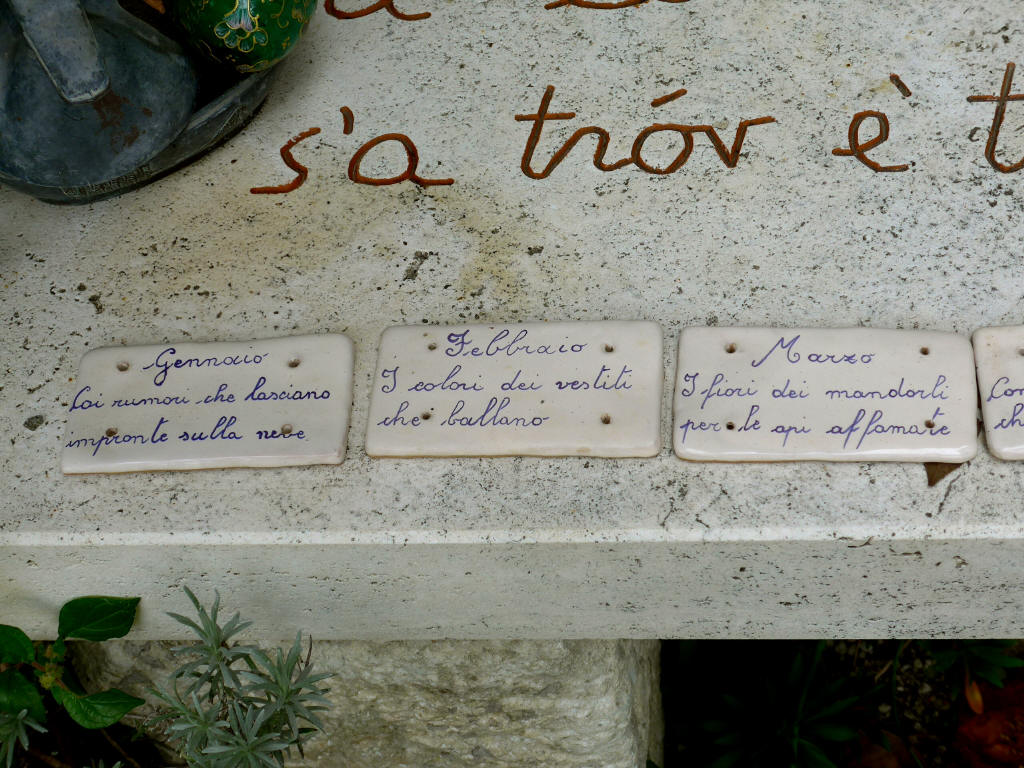 s'a tróv è t
Gennaio
Coi rumori che lasciano
impronte sulla neve
Febbraio
I colori dei vestiti
che ballano
Marzo
I fiori dei mandorli
per le api affamate
Con
ch